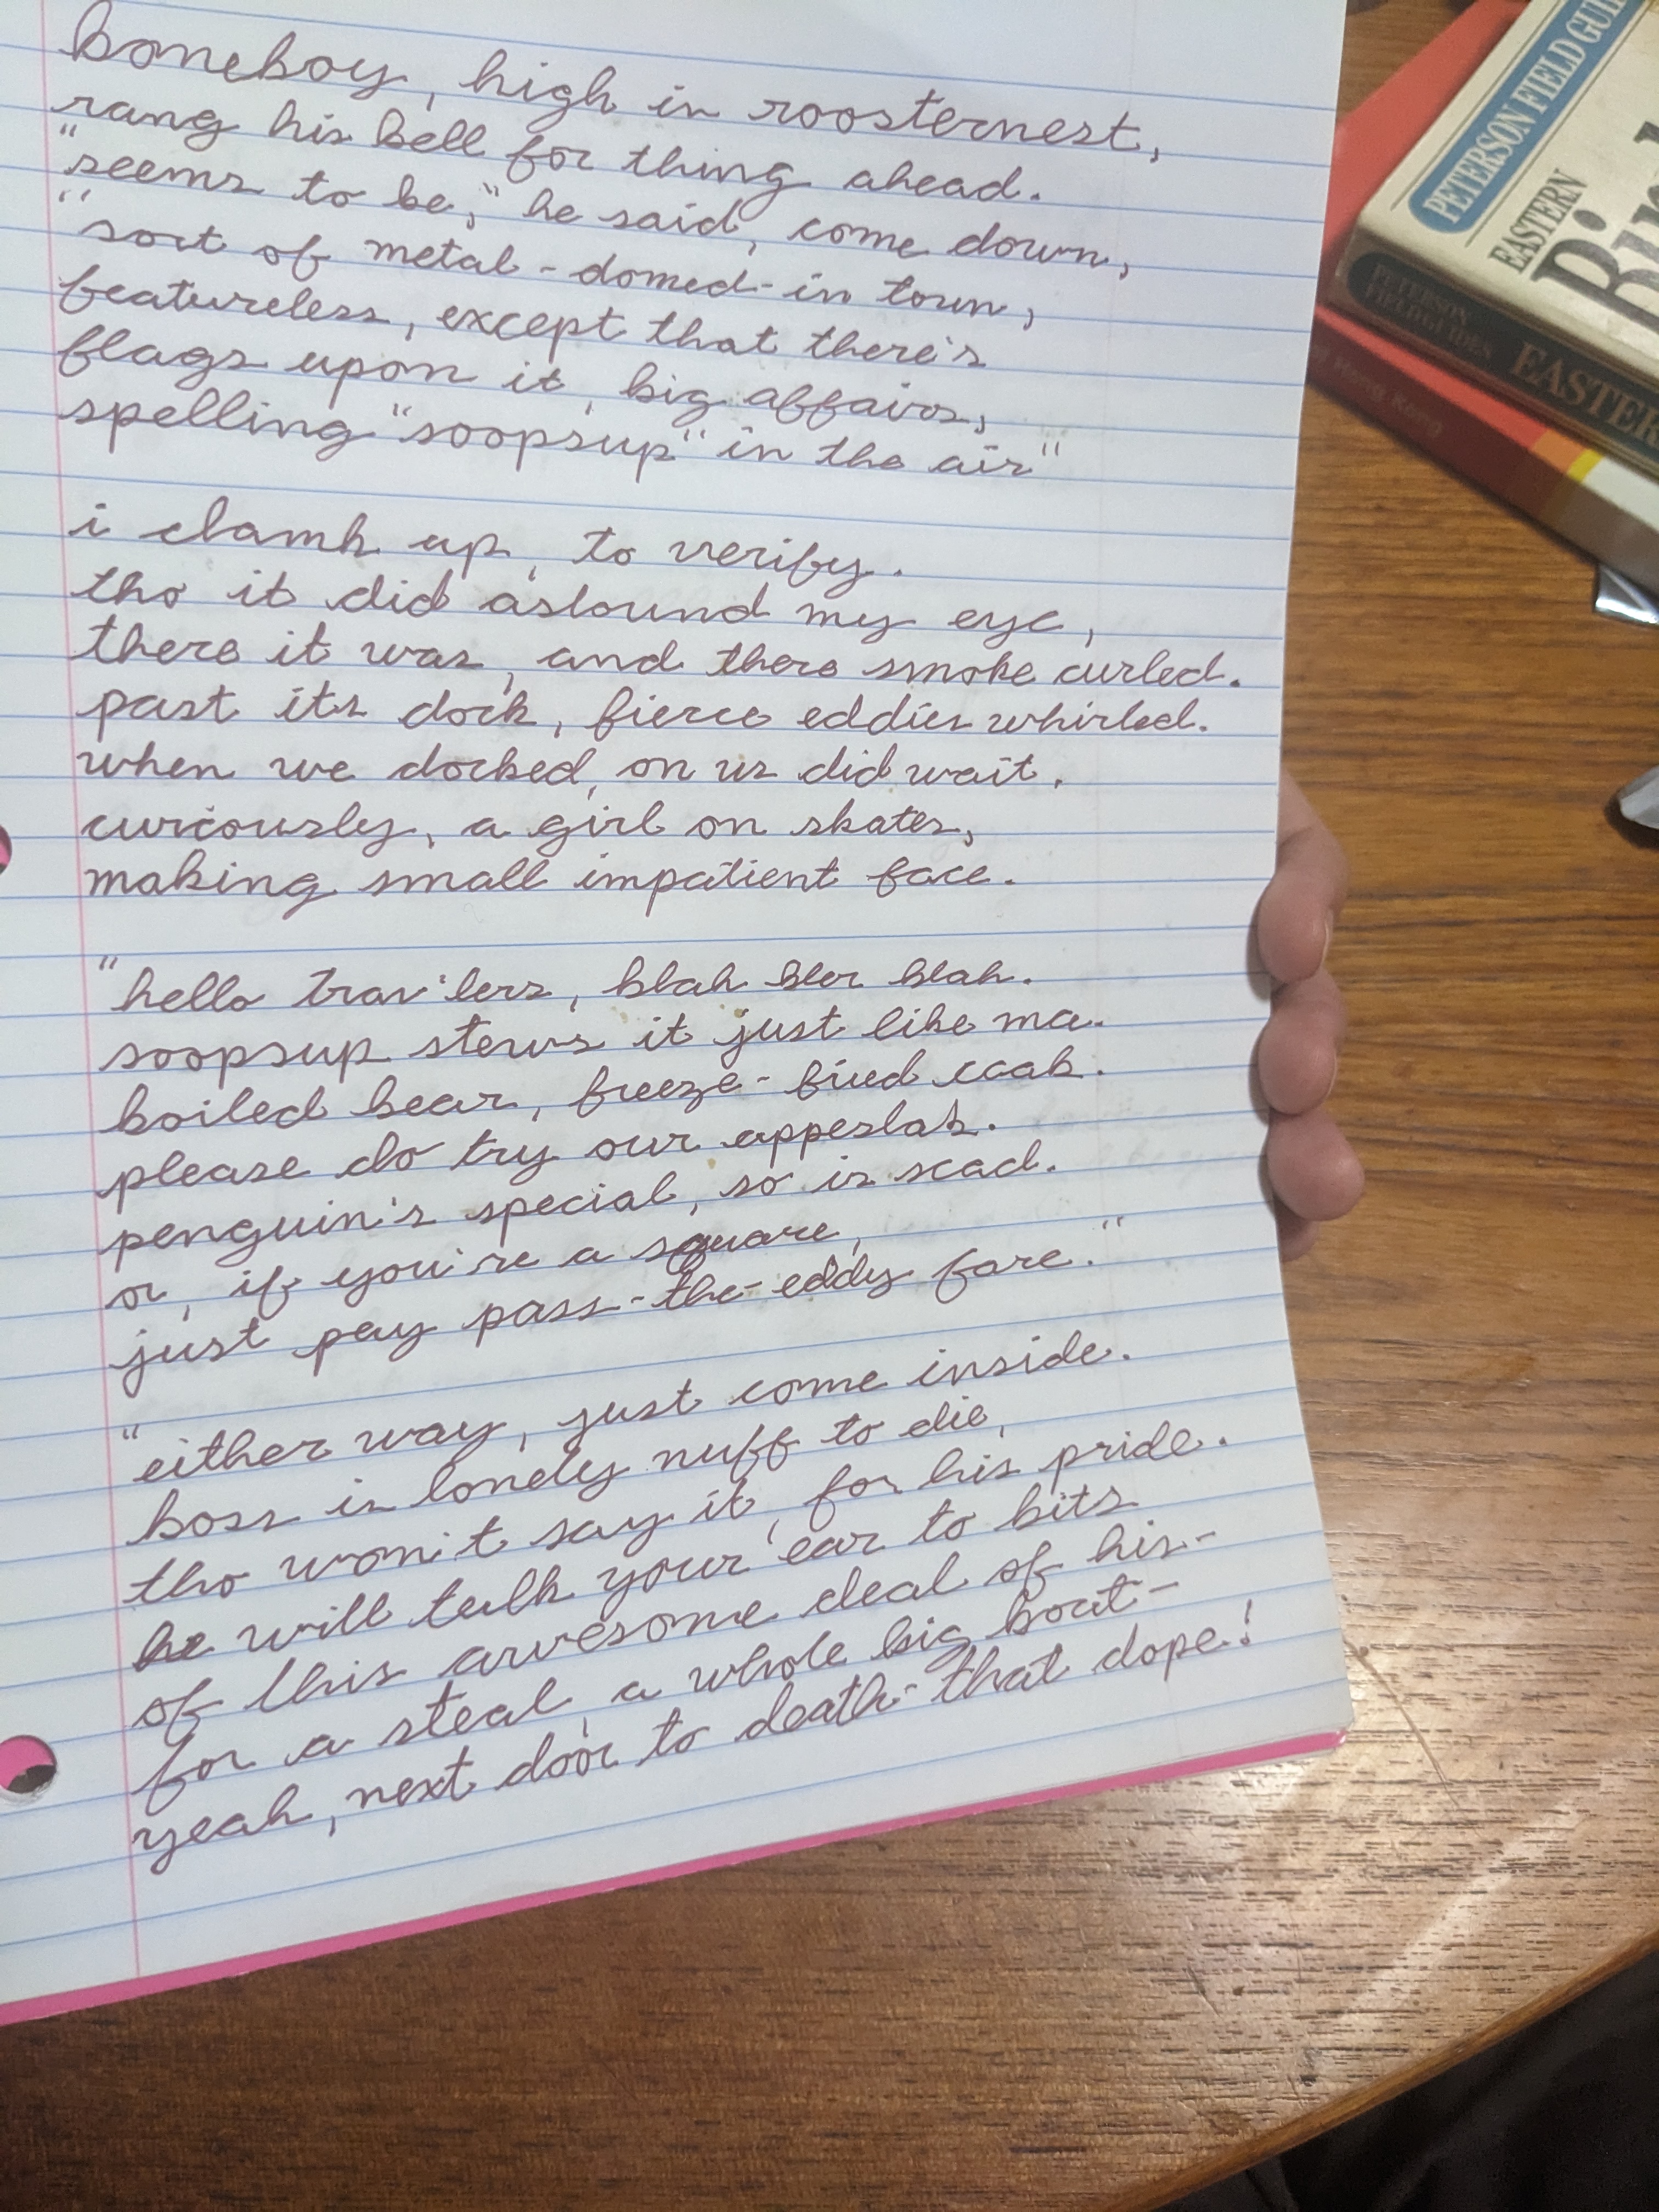 boneboy, high in roosternest,
rang his bell for thing ahead.
"seems to be," he said, come down,
"sort of metal-domed-in town,
featureless, except that there's
flags upon it, big affairs,
spelling "soopsup" in the air"
i clamb up, to verify.
tho it did astound my eye,
there it was, and there smoke curled.
past its dock, fierce eddies whirled.
when we docked, on us did wait.
curiously, a girl on skates,
making small impatient face.
"hello trav'lers, blah bler blah.
soopsup stews it just like ma.
boiled bear, freeze-fried
please do try our
penguin's special, so is scad.
or, if you're a square,
just pay pass-the-eddy fare."
"either way, just come inside.
boss is lonely nuff to die,
tho won't say it, for his pride.
he will talk your ear to bits
of this awesome deal of his-
for a steal, a whole big boat-
yeah, next door to death-that dope!
PETERSON FIELD
EASTERN
PETERSON
FIELD GUIDES
EASTER
Hong Kong